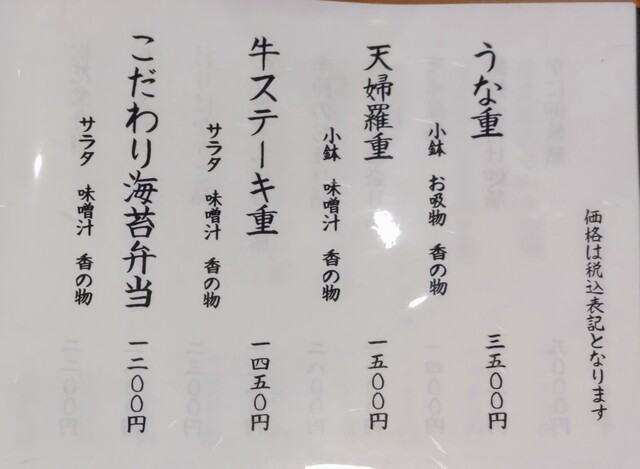 価格は税込表記となります
うな重 三五〇〇円
小鉢 お吸物 香の物
天婦羅重 一五〇〇円
小鉢 味噌汁 香の物
牛ステーキ重 一四五〇円
サラダ 味噌汁 香の物
こだわり海苔弁当 一二〇〇円
サラダ 味噌汁 香の物